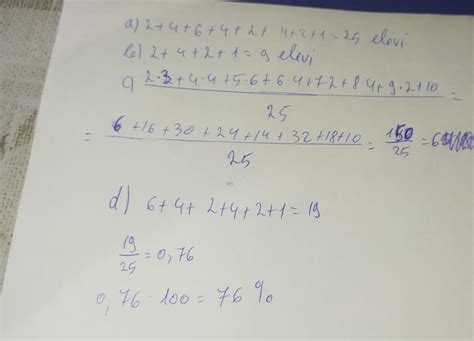 a) 2+4+6+4+2+ 4+2+1=25 elevi
b) 2+4+2+1=9 elevi
c) 2·3+4·4+5·6+6·4+7·2+8·4+9·2+10 =
25
= 6+16+30+24+14+32+18+10 = 150 = 6
25 25
d) 6+4+2+4+2+1=19
19 = 0,76
25
0,76·100=76%